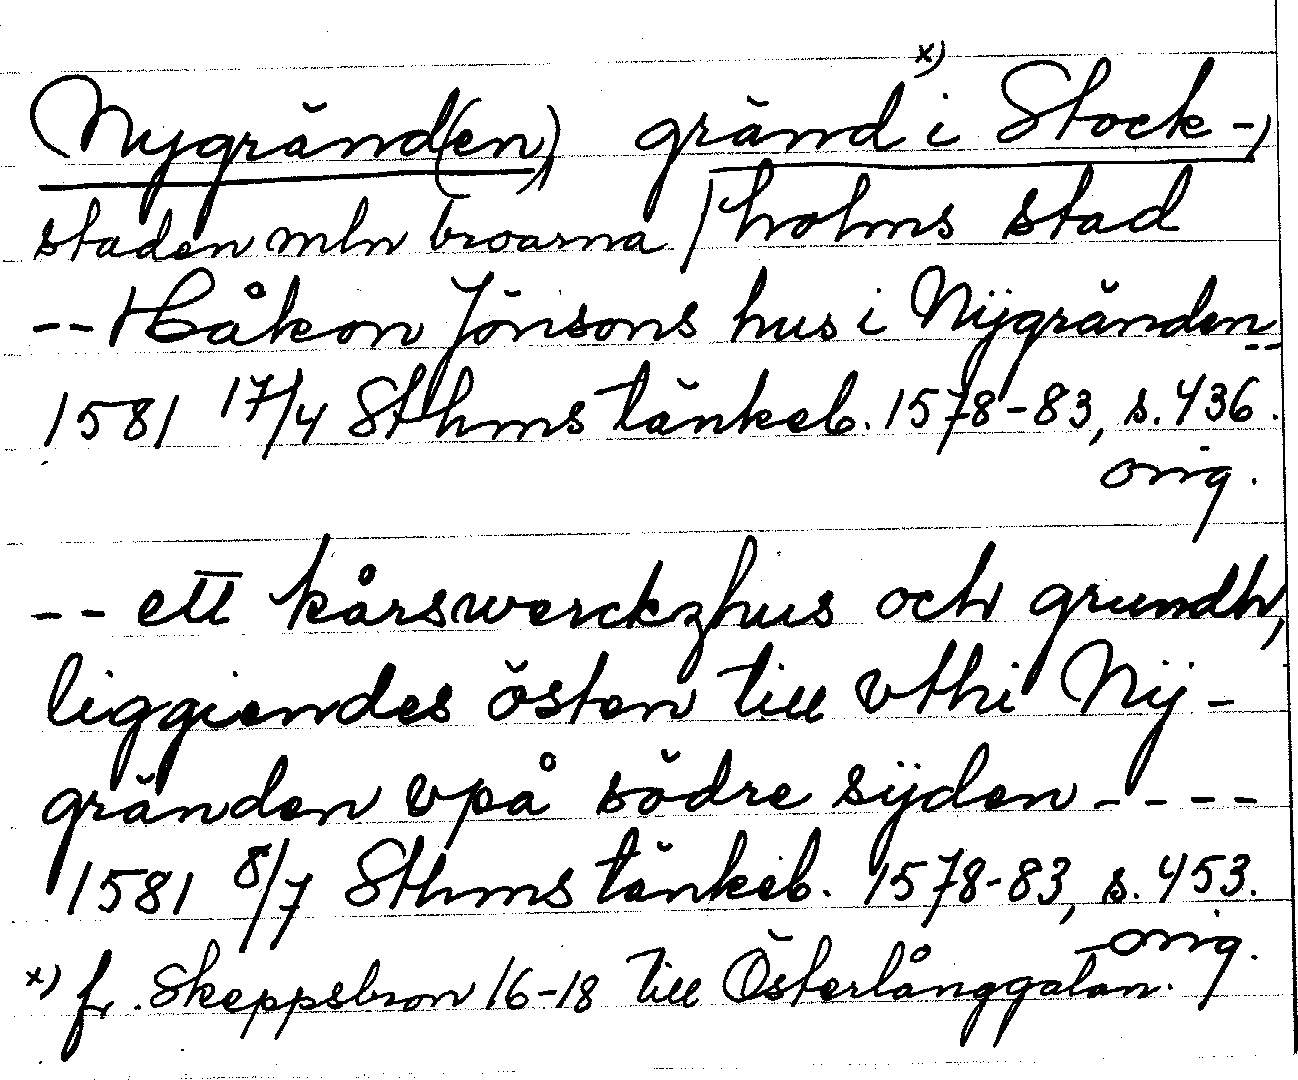 Nygränd(en) gränd x) i Stock-
staden mln broarna / holms stad
-- Håkon Jönsons hus i Nÿgränden --
1581 17/4 Sthms tänkeb. 1578-83, s. 436.
orig.
-- ett kårswerckzhus och grundh,
liggiendes östen till vthi Nÿ-
gränden vpå södre sÿden ----
1581 8/7 Sthms tänkeb. 1578-83, s. 453.
orig.
x) fr. Skeppsbron 16-18 till Österlånggatan.